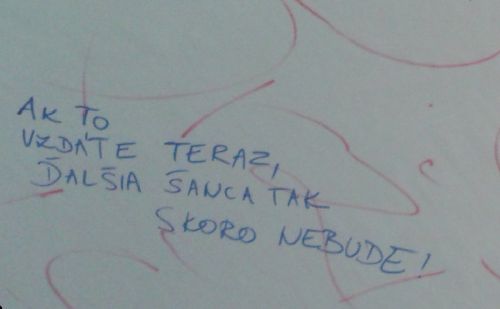 AK TO
VZDÁTE TERAZ,
ĎALŠIA ŠANCA TAK
SKORO NEBUDE!